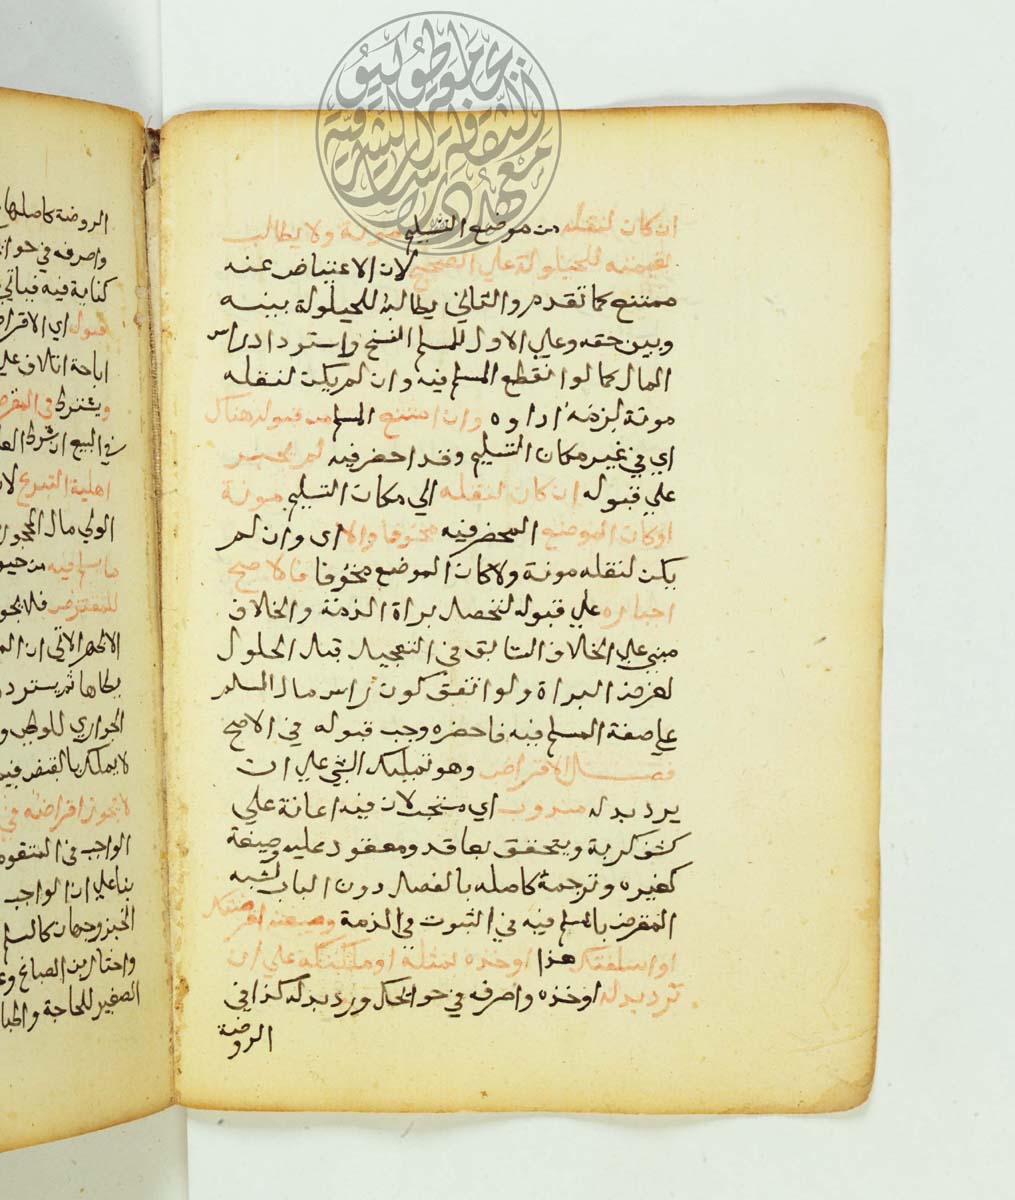 ان كان لنقله من موضع التسليم مونة ولا يطالب
بقيمته للحيلولة علي الصحيح لان الاعتياض عنه
ممتنع كما تقدم والثاني يطالبه للحيلولة بينه
وبين حقه وعلي الاول للمسلم الفسخ واسترداد راس
المال كما لو انقطع المسلم فيه وان لم يكن لنقله
مونة لزمه اداوه وان امتنع المسلم من قبوله هناك
اي في غير مكان التسليم وقد احضر فيه لم يجبر
علي قبوله ان كان لنقله الي مكان التسليم مونة
او كان الموضع المحضر فيه مخوفا والا اي وان لم
يكن لنقله مونة ولا كان الموضع مخوفا فالاصح
اجباره علي قبوله لتحصل براة الذمة والخلاف
مبني علي الخلاف السابق في التعجيل قبل الحلول
لغرض البراة ولو اتفق كون راس مال السلم
علي صفة المسلم فيه فاحضره وجب قبوله في الاصح
فصل الاقراض وهو تمليك الشي علي ان
يرد بدله مندوب اي مستحب لان فيه اعانة علي
كشف كربة ويتحقق بعاقد ومعقود عليه وصيغة
كغيره وترجمه كاصله بالفصل دون الباب لشبه
المقرض بالمسلم فيه في الثبوت في الذمة وصيغته اقرضتك
او اسلفتك هذا او خذه بمثله او ملكتكه علي ان
ترد بدله او خذه واصرفه في حوائجك ورد بدله كذا في
الروضة
الروضة كاصلها
واصرفه في
كناية فيه فياتي
قبوله اي
اباحة اتلاف علي
ويشترط في المقرض
في البيع ان شرط
اهلية التبرع
الولي مال المحجور
ما يسلم فيه من
للمقترض فلا
الاظهر الاتي ان
يطاها ثم يسترد
الجواري للوطي
لا يملك بالقبض
لا يجوز اقراضه في
الواجب في المتقوم
بنا علي ان الواجب
الخبز وجهان كالسلم
واختار ابن الصباغ
الصغير للحاجة